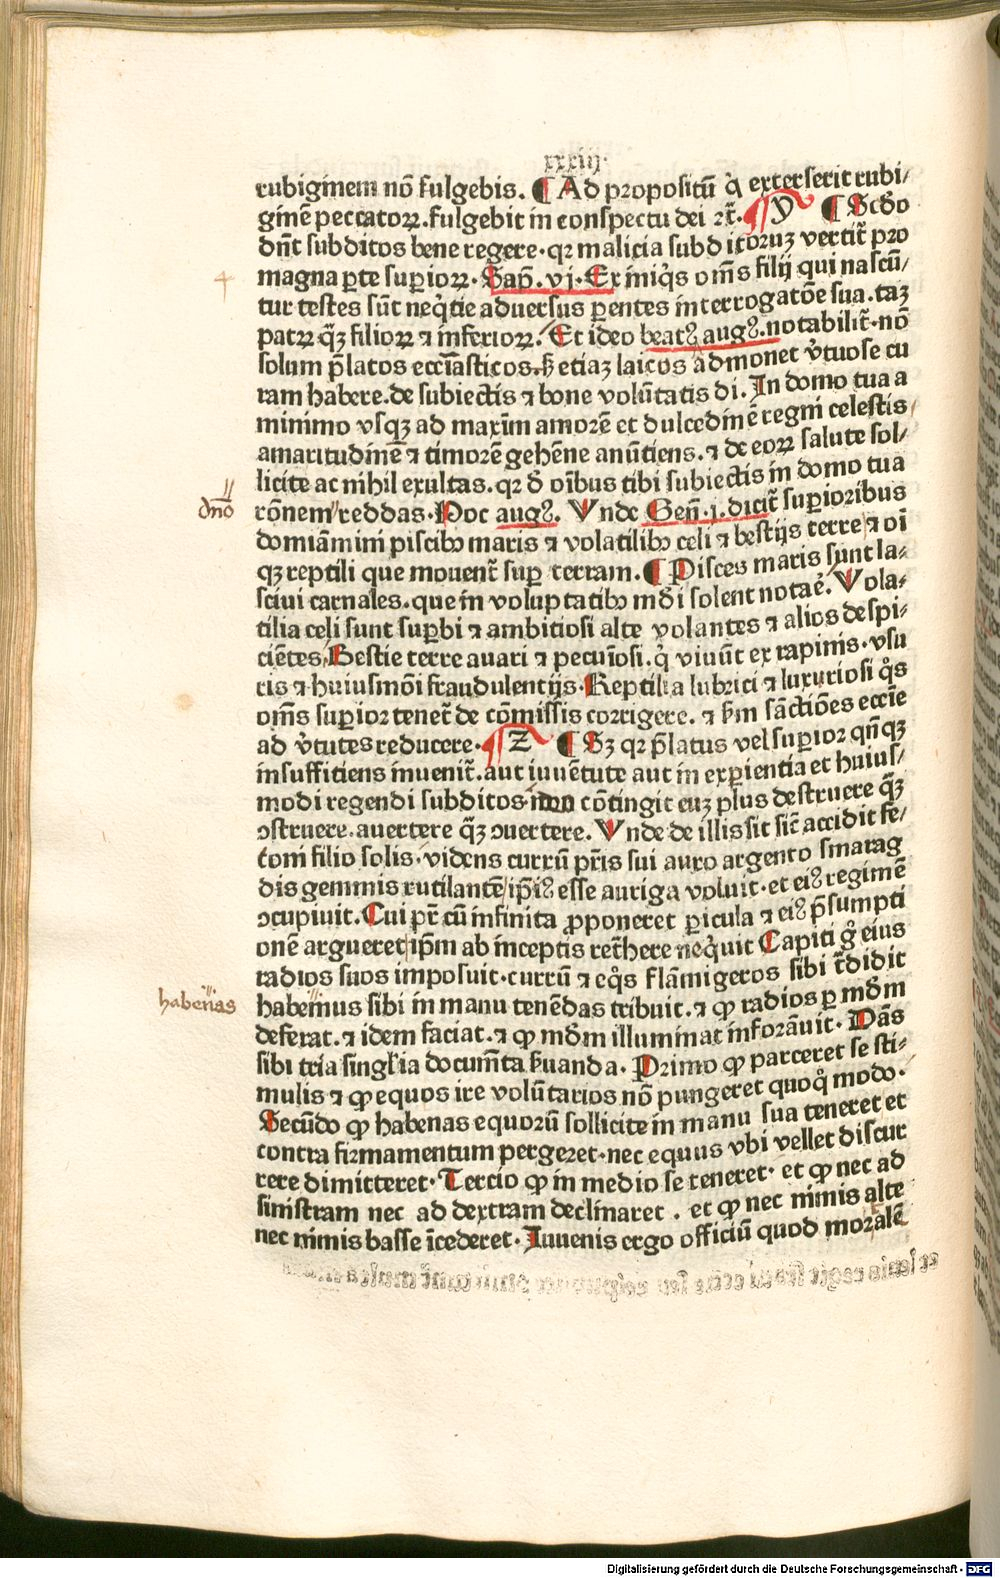 xxxiij·
rubiginem nō fulgebis. ¶ Ad propositū q̇ exterserit rubi/
ginē peccatoꝝ. fulgebit in conspectu dei ꝛc̃. ¶ y ¶ Scd̄o
dn̄t subditos bene regere· qꝛ malicia subditoruꝫ vertit̃ pro
magna ꝑte suꝑioꝝ· Sap̄. vj. Ex iniq̇s om̄s filij qui nascū/
tur testes sūt neq̇tie aduersus ꝑentes interrogatōe sua. taꝫ
patꝝ qꝫ̄ filioꝝ ⁊ inferioꝝ. Et ideo beatꝰ augꝰ. notabilit̃. nō
solum p̄latos ecc̄iasticos. sꝫ etiaꝫ laicos admonet v̓tuose cu
ram habere. de subiectis ⁊ bone volūtatis di. In domo tua a
minimo vsqꝫ ad maxīm amorē et dulcedinē regni celestis
amaritudinē ⁊ timorē gehēne anūtiens. ⁊ de eoꝝ salute sol/
licite ac nihil exultas. qꝛ d̄ oībus tibi subiectis in domo tua
dn̄o
rōnem reddas. Hoc augꝰ. Vnde Gen̄. j. dicit̃ suꝑioribus
domiāmini piscibꝫ maris ⁊ volatilibꝫ celi ⁊ bestijs terre ⁊ oī
qꝫ reptili que mouent̃ suꝑ terram. ¶ Pisces maris sunt la-
sciui carnales. que in voluptatibꝫ mūdi solent notaꝛ̓. Vola-
tilia celi sunt suꝑbi ⁊ ambitiosi alte volantes ⁊ alios despi-
ciētes. Bestie terre auari ⁊ pecuīosi. q̇ viuūt ex rapinis. vsu
ris ⁊ huiusmōi fraudulentijs. Reptilia lubrici ⁊ luxuriosi q̇s
om̄s suꝑior tenet̃ de cōmissis corrigere. ⁊ ẜm sāctiōes eccīe
ad v̓tutes reducere. ¶ z ¶ Sꝫ qꝛ p̄latus vel suꝑior qn̄qꝫ
insufficiens inuenit̃. aut iuuētute aut in exꝑientia et huius/
modi regendi subditos. non cōtingit euꝫ plus destruere qꝫ̄
ꝯstruere. auertere qꝫ̄ ꝯuertere. Vnde de illis sit sic̄ accidit fe/
toni filio solis. videns currū pr̄is sui auro argento smarag
dis gemmis rutilantē ip̄iꝰ esse auriga voluit. et eiꝰ regimē
ꝯcupiuit. Cui pr̄ cū infinita ꝓponeret ꝑicula ⁊ eiꝰ p̄sumpti
onē argueret ip̄m ab inceptis ret̃here neq̇uit Capiti g̊ eius
radios suos imposuit. currū ⁊ eq̇s flāmigeros sibi t̃didit
habenias
habemus sibi in manu tenēdas tribuit. ⁊ ꝙ radios ꝑ mūdm
deferat. ⁊ idem faciat. ⁊ ꝙ mūdm illuminat inforāuit. Dās
sibi tria singl̄ia docum̄ta ẜuanda. Primo ꝙ parceret se sti-
mulis ⁊ ꝙ equos ire volūtarios nō pungeret quoq̇ modo.
Secūdo ꝙ habenas equorū sollicite in manu sua teneret et
contra firmamentum pergeret. nec equus vbi vellet discur
rere dimitteret. Tercio ꝙ in medio se teneret. et ꝙ nec ad
sinistram nec ad dextram declinaret. et ꝙ nec nimis alte
nec nimis basse īcederet. Iuuenis ergo officiū quod moralē
Digitalisierung gefördert durch die Deutsche Forschungsgemeinschaft - DFG